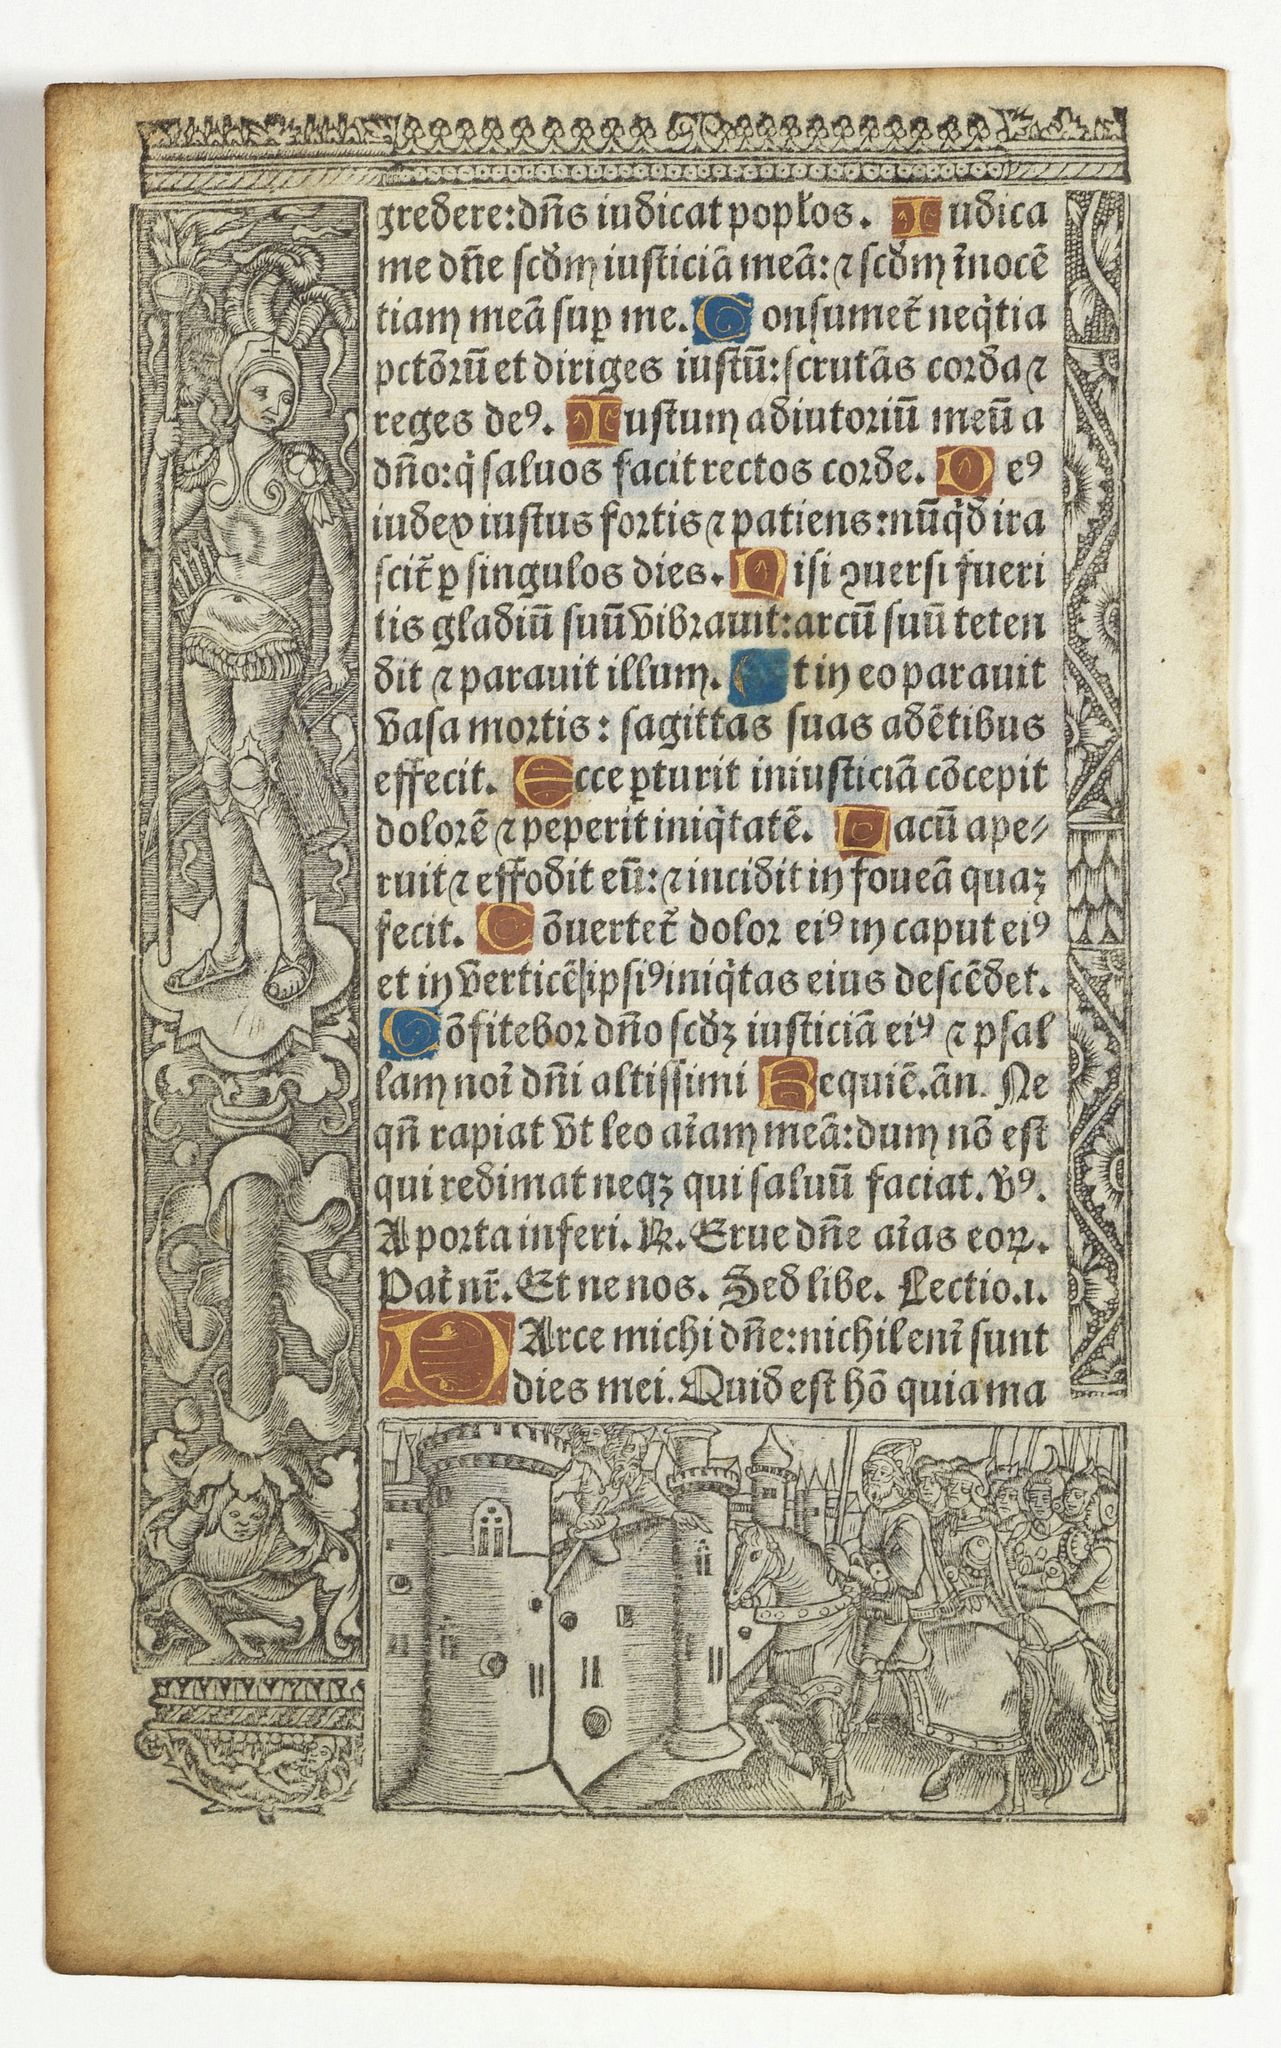 gredere:dn̄s iudicat popl̄os. Iudica
me dn̄e scd̄m iusticiā meā: ⁊ scd̄m īnocē
tiam meā suꝑ me. Consumet̄ neq̇tia
pctōrū et diriges iustū: scrutās corda ⁊
reges deꝰ. Iustum adiutoriū meū a
dn̄o: q̇ saluos facit rectos corde. Deꝰ
iudex iustus fortis ⁊ patiens: nūq̇d ira
scit̄ ꝑ singulos dies. Nisi ꝯuersi fueri
tis gladiū suū vibrauit: arcū suū teten
dit ⁊ parauit illum. Et in eo parauit
vasa mortis: sagittas suas adētibus
effecit. Ecce ꝑturit iniusticiā cōcepit
dolorē ⁊ peperit iniq̇tatē. Lacū ape⸗
ruit ⁊ effodit eū: ⁊ incidit in foueā quaꝫ
fecit. Cōuertet̄ dolor eiꝰ in caput eiꝰ
et in verticē ipsiꝰ iniq̇tas eius descēdet.
Cōfitebor dn̄o scd̄ꝫ iusticiā eiꝰ ⁊ psal
lam noī dn̄i altissimi Requiē. ān. Ne
qn̄ rapiat vt leo aīam meā: dum nō est
qui redimat neqꝫ qui saluū faciat. v̄ꝰ.
A porta inferi. ℟. Erue dn̄e aīas eoꝝ.
Pat̄ nr̄. Et ne nos. Sed libe. Lectio.i.
PArce michi dn̄e: nichil enī sunt
dies mei. Quid est hō quia ma